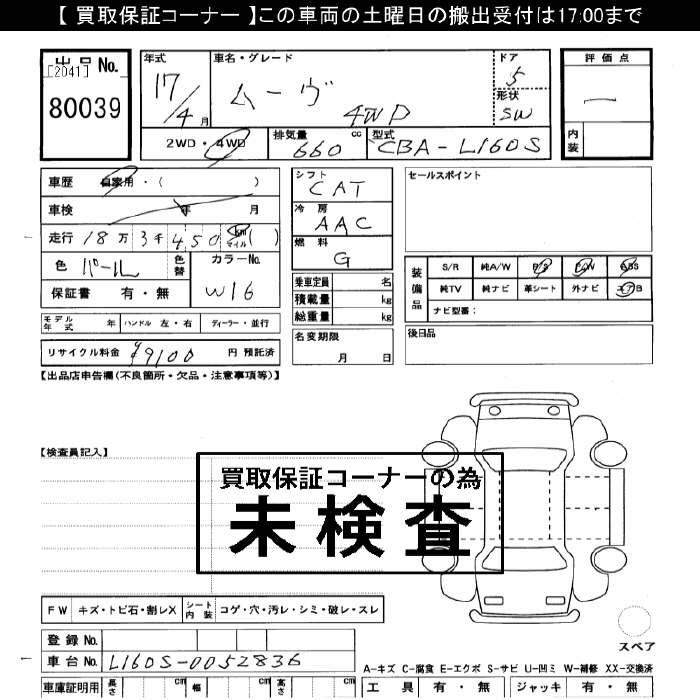 【 買取保証コーナー 】この車両の土曜日の搬出受付は17:00まで
出品 No.
[2041]
80039
年式
17/4 月
車名・グレード
ムーヴ
4WD
ドア
5
形状
SW
評価点
内装
2WD・4WD
排気量
660 cc
型式
CBA-L160S
車歴 自家用・( )
車検 年 月
走行 18万3千450 km マイル ( )
色 パール
色替
カラーNo.
W16
保証書 有・無
シフト
CAT
冷房
AAC
燃料
G
乗車定員 名
積載量 kg
総重量 kg
名変期限
月 日
セールスポイント
装備品
S/R 純A/W P/S P/W ABS
純TV 純ナビ 革シート 外ナビ エアB
ナビ型番：
後日品
モデル年式 年 ハンドル 左・右 ディーラー・並行
リサイクル料金 ¥9100 円 預託済
【出品店申告欄(不良箇所・欠品・注意事項等)】
【検査員記入】
買取保証コーナーの為
未検査
FW キズ・トビ石・割レX シート内装 コゲ・穴・汚レ・シミ・破レ・スレ
登録 No.
車台 No. L160S-0052836
車庫証明用 長さ cm 幅 cm 高さ cm
スペア
A-キズ C-腐食 E-エクボ S-サビ U-凹ミ W-補修 XX-交換済
工具 有・無 ジャッキ 有・無